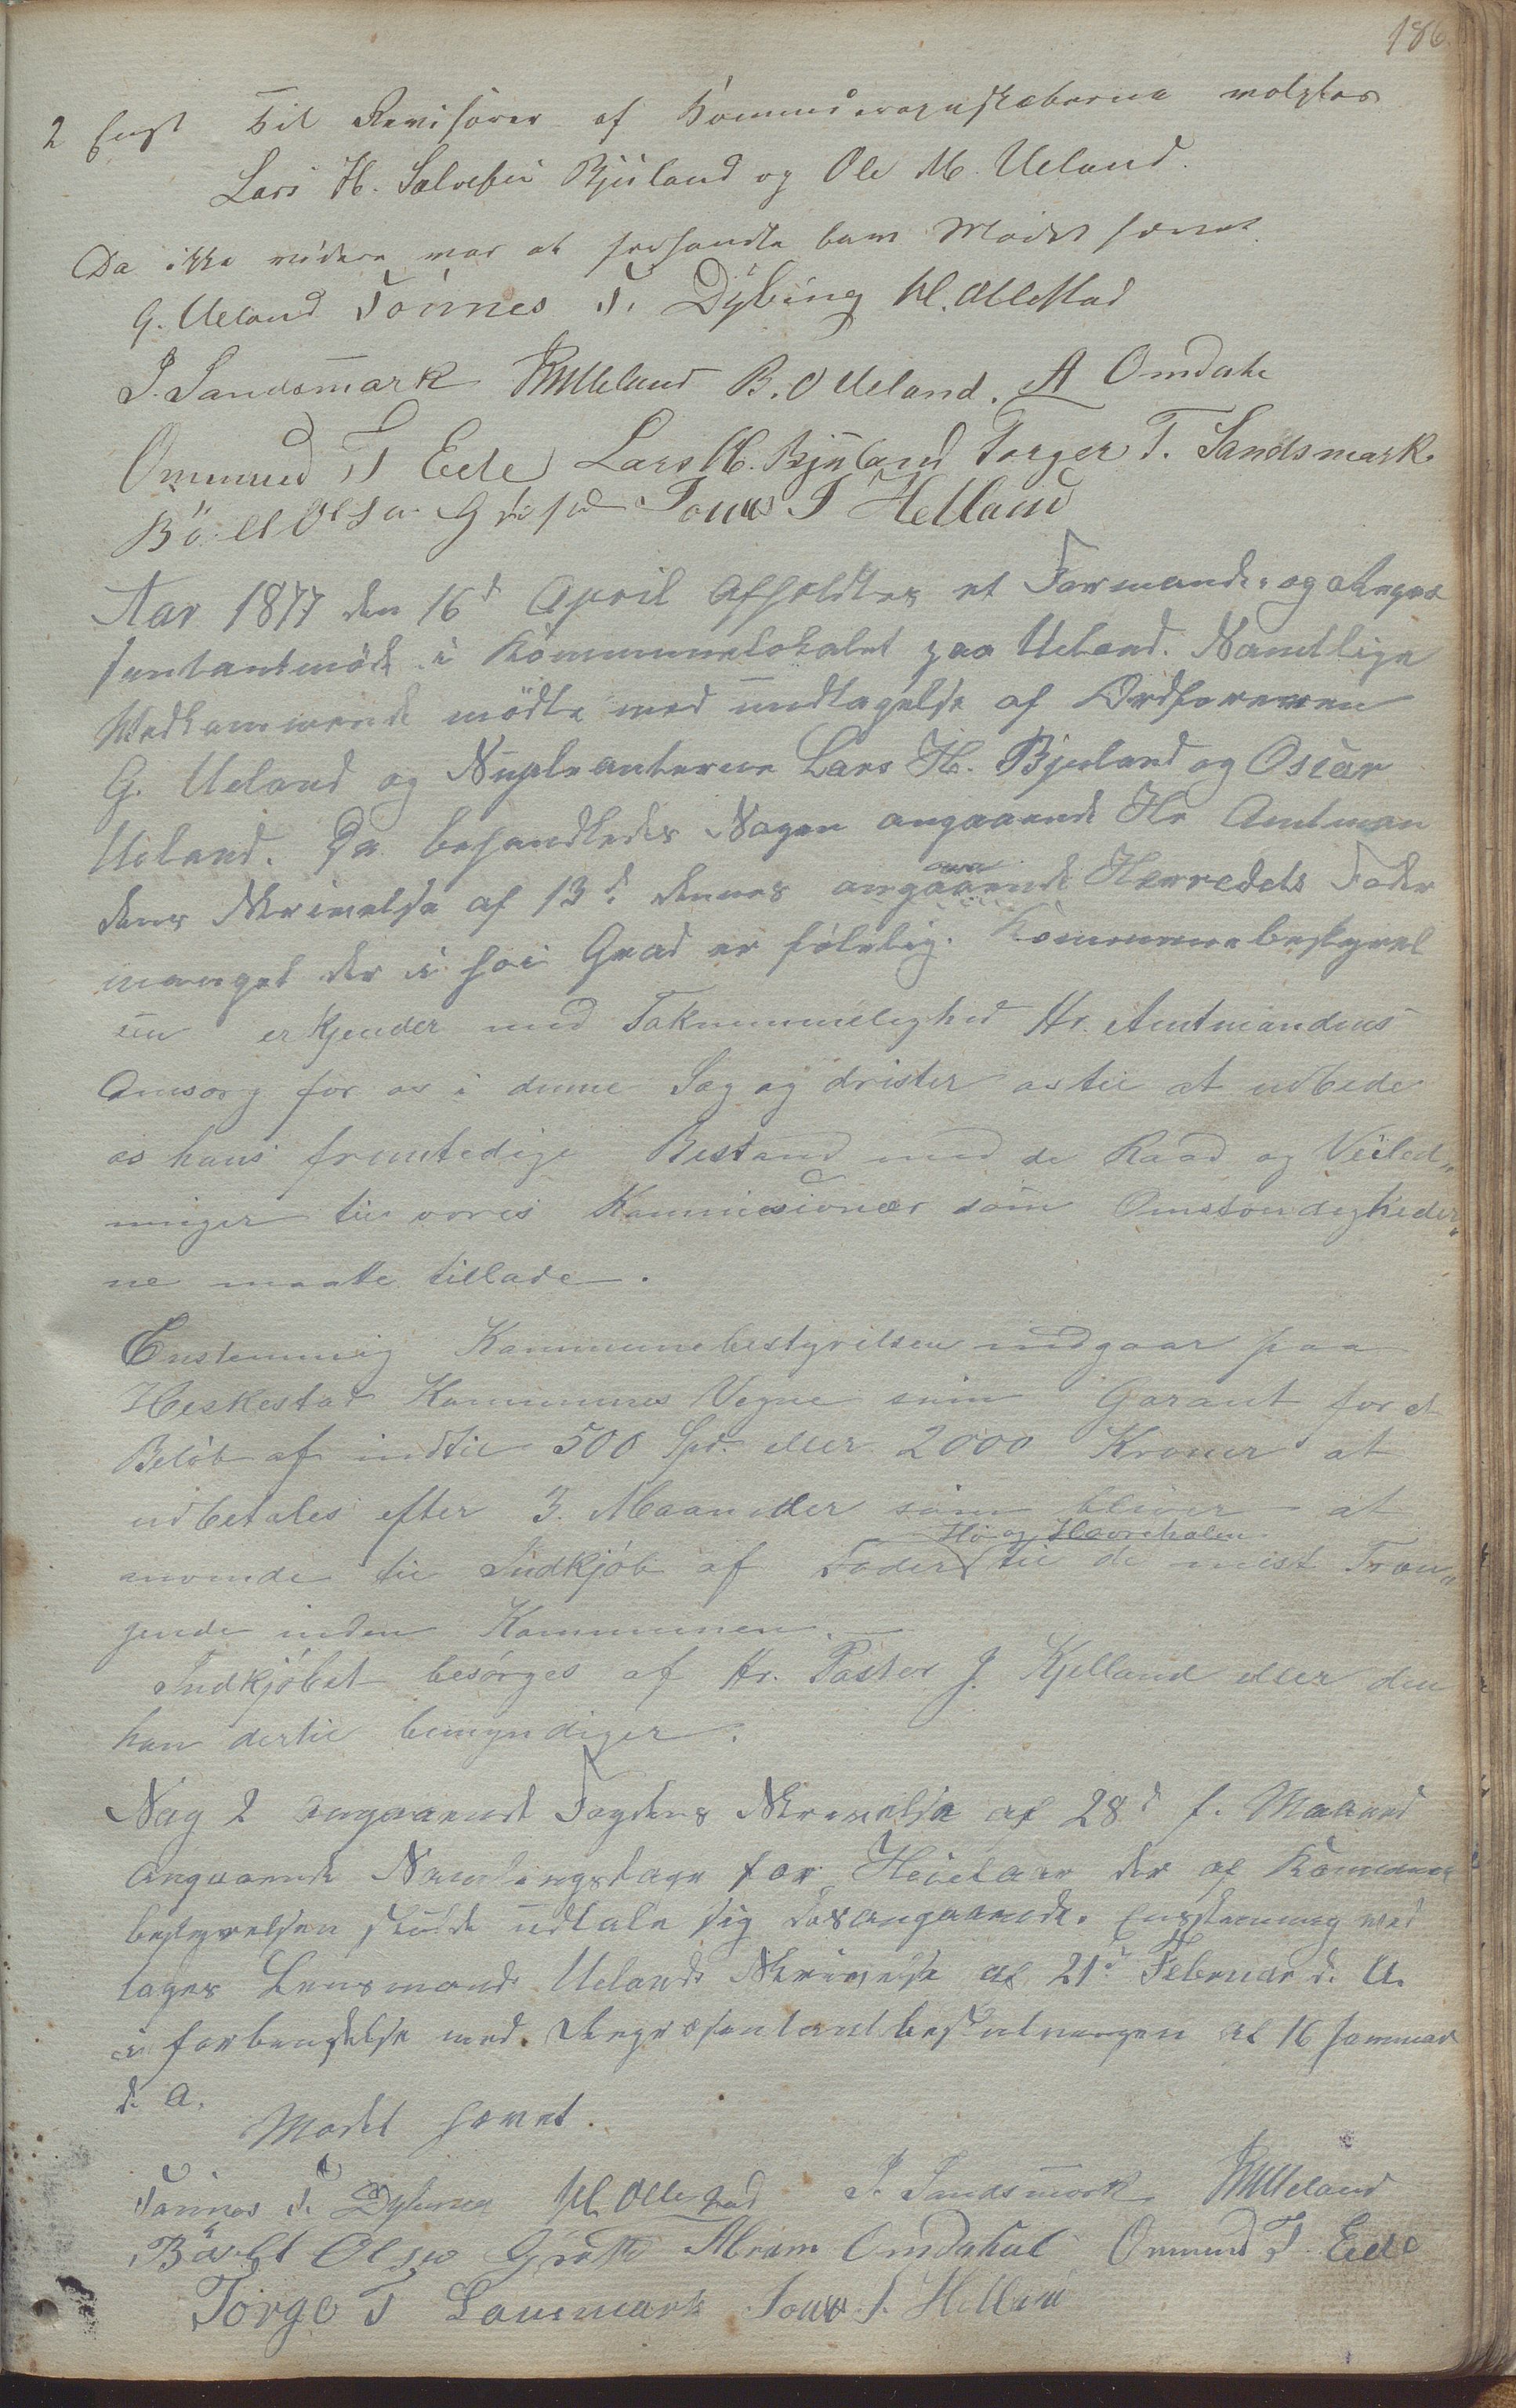 186.
2 Enst Til Revisorer af Kommuneregnskaberne valgtes
Lars H. Salvesen Bjuland og Ole M. Ueland.
Da ikke videre var at forhandle blev Mödet hævet.
G. Ueland Tönnes T. Dybing M. Ollestad
J. Sandsmark B. O Ueland. A Omdahl
Ommund T Eede Lars H. Bjuland Torger T. Sandsmark.
Olsen Tonnes T Helland
Aar 1877 den 16d April afholdtes et Formands- og Repræ
sentantmöde i Kommunelokalet paa Ueland. Samtlige
Vedkommende mödte med undtagelse af Ordföreren
G. Ueland og Supleanterne Lars H. Bjuland og Oscar
Ueland. Da behandledes Sagen angaaende Hr Amtman
dens Skrivelse af 13d dennes angaaende Herredets Foder
mangel der i höi Grad er fölelig. Kommunebestyrel
sen erkjender med Taknemmelighed Hr. Amtmandens
Omsorg for os i denne Sag og drister os til at udbede
os hans fremtidige Bistand med de Raad og Veiled„
ninger til vores Kommissionær som Omstændigheder„
ne maatte tillade.
Enstemmig Kommunebestyrelsen indgaar paa
Heskestad Kommunes Vegne som Garant for et
Beløb af indtil 500 Spd. eller 2000 Kroner at
udbetales efter 3. Maaneder som bliver at
Hö og Havrehalm
anvende til Indkjöb af Foder til de mest Træn„
gende inden Kommunen.
Indkjöbet besörges af Hr. Pastor J. Kjelland eller den
han dertil bemyndiger.
Sag 2 angaaende Fogdens Skrivelse af 28d f. Maaned
angaaende Samlingsdage for Heielaar der af Kommune
bestyrelsen skulde udtale sig desangaaende. Enstemmig ved
tages Lensmand Uelands Skrivelse af 21d Februar d. A.
i forbindelse med Repræsentantbeslutningen af 16 Januar
d. A.
Mödet hævet.
Tönnes T. Dybing M. Ollestad J. Sandsmark
Olsen Abram Omdahl Ommund T. Eede
Torge T Sansmark Tonnes T. Helland